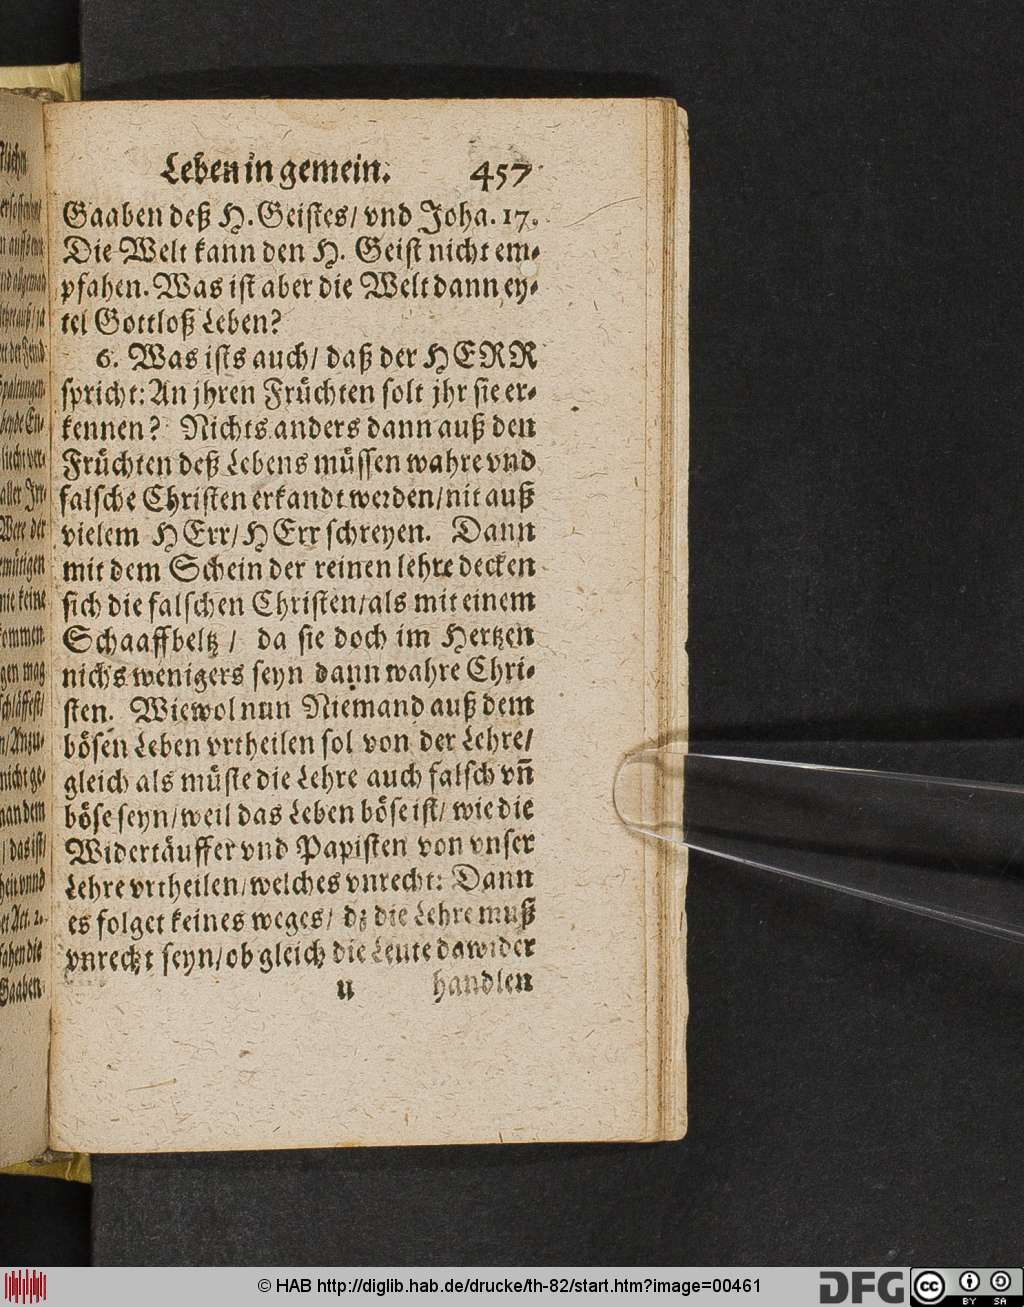 Leben in gemein. 457
Gaaben deß H. Geistes/ vnd Joha. 17.
Die Welt kann den H. Geist nicht em-
pfahen. Was ist aber die Welt dann ey-
tel Gottloß Leben?
6. Was ists auch/ daß der HERR
spricht: An jhren Früchten solt jhr sie er-
kennen? Nichts anders dann auß den
Früchten deß Lebens müssen wahre vnd
falsche Christen erkandt werden/ nit auß
vielem HErr/ HErr schreyen. Dann
mit dem Schein der reinen lehre decken
sich die falschen Christen/ als mit einem
Schaaffbeltz/ da sie doch im Hertzen
nichs wenigers seyn dann wahre Chri-
sten. Wiewol nun Niemand auß dem
bösen Leben vrtheilen sol von der Lehre/
gleich als müste die Lehre auch falsch vñ
böse seyn/ weil das Leben böse ist/ wie die
Widertäuffer vnd Papisten von vnser
Lehre vrtheilen/ welches vnrecht: Dann
es folget keines weges/ dz die Lehre muß
vnrecht seyn/ ob gleich die Leute dawider
u handlen
© HAB http://diglib.hab.de/drucke/th-82/start.htm?image=00461
DFG cc BY SA